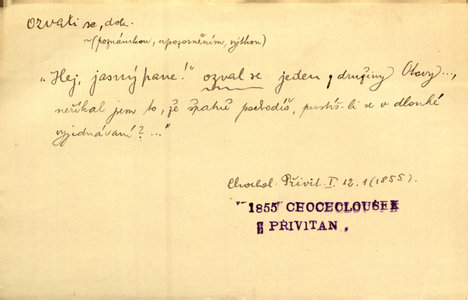 ozvati se, dok.
~(poznámkou, upozorněním, výtkou)
"Hej, jasný pane!" ozval se jeden z družiny Otovy...,
neříkal jsem to, že špatně pochodíš, pustíš-li se v dlouhé
vyjednávání?..."
Chochol. Přivit. I. 12.1 (1855).
"1855 CHOCHOLOUŠEK
PŘIVITAN,